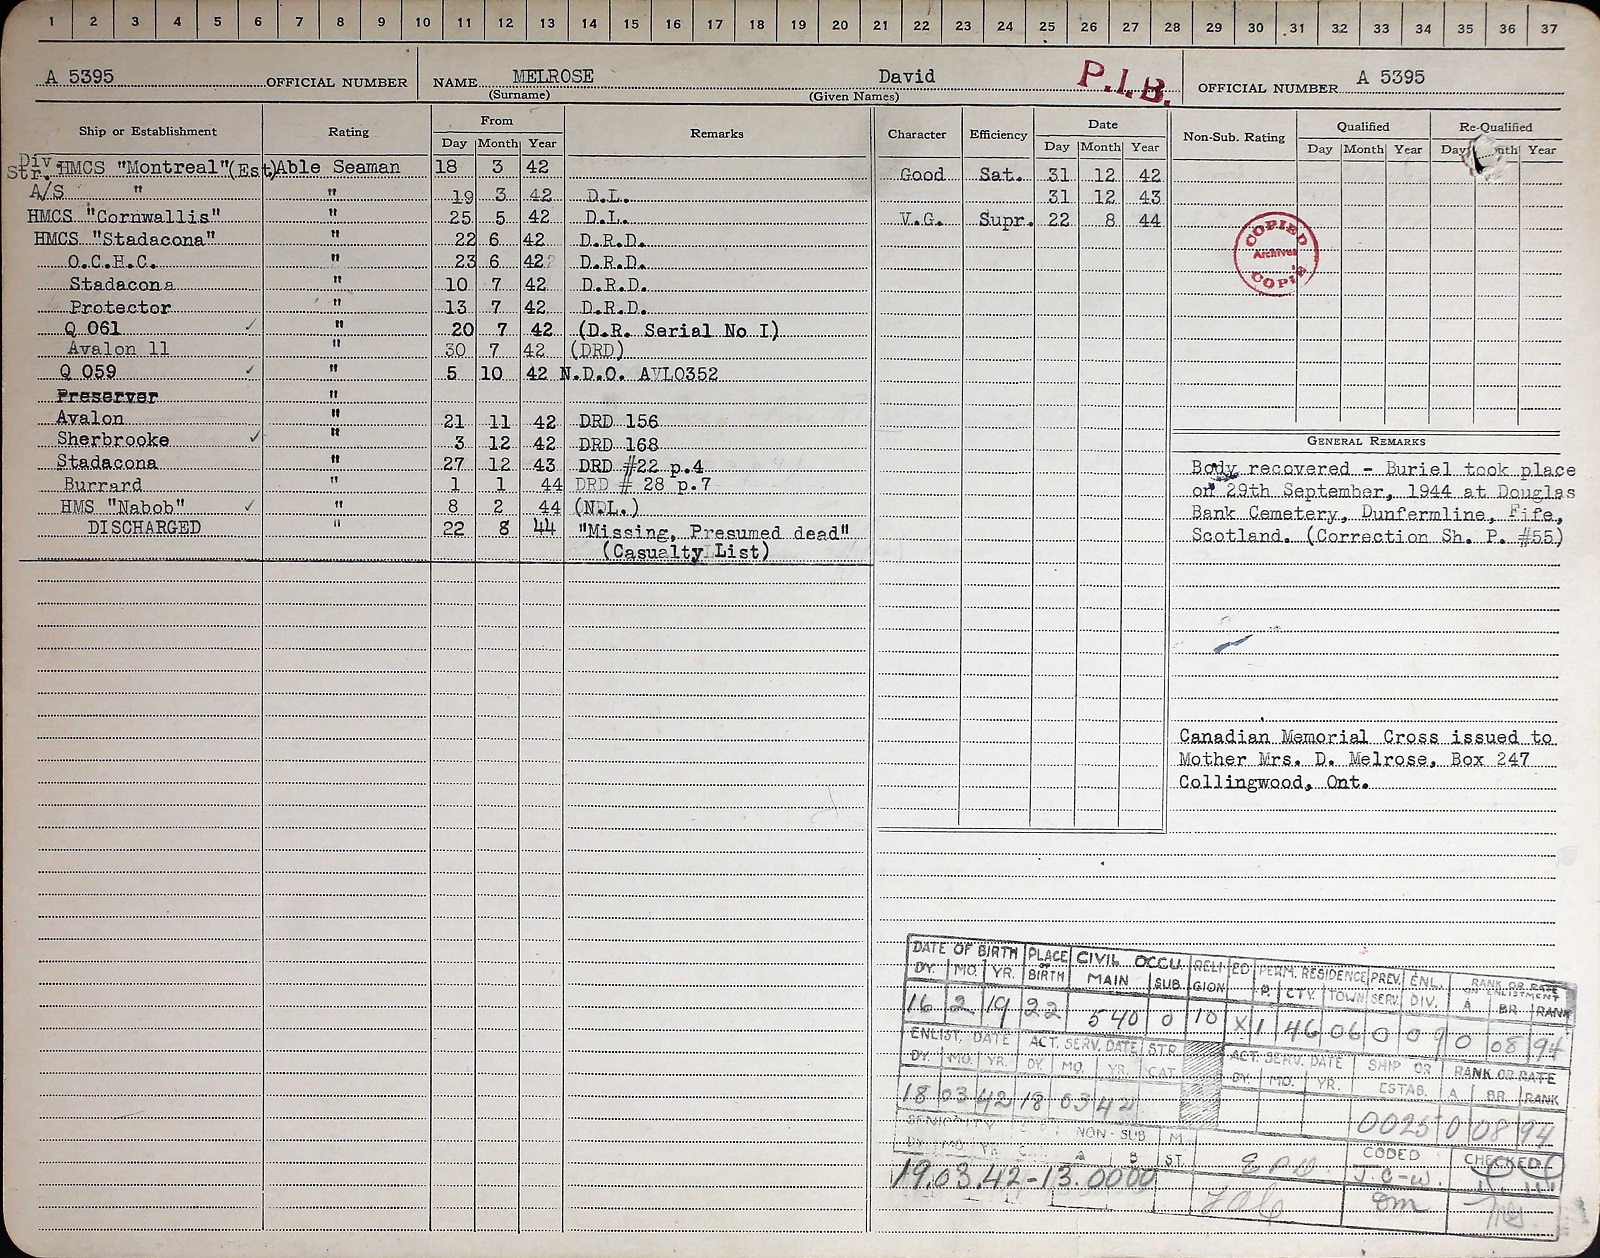 1 2 3 4 5 6 7 8 9 10 11 12 13 14 15 16 17 18 19 20 21 22 23 24 25 26 27 28 29 30 31 32 33 34 35 36 37
A 5395 OFFICIAL NUMBER NAME MELROSE David P.I.B. OFFICIAL NUMBER A 5395
(Surname) (Given Names)
Ship or Establishment Rating From Remarks
Day Month Year
Div. Str. HMCS "Montreal"(Est) Able Seaman 18 3 42
A/S " " 19 3 42 D.L.
HMCS "Cornwallis" " 25 5 42 D.L.
HMCS "Stadacona" " 22 6 42 D.R.D.
O.C.H.C. " 23 6 42 D.R.D.
Stadacona " 10 7 42 D.R.D.
Protector " 13 7 42 D.R.D.
Q 061 ✓ " 20 7 42 (D.R. Serial No I)
Avalon 11 " 30 7 42 (DRD)
Q 059 ✓ " 5 10 42 N.D.O. AVLO352
Preserver "
Avalon " 21 11 42 DRD 156
Sherbrooke ✓ " 3 12 42 DRD 168
Stadacona " 27 12 43 DRD #22 p.4
Burrard " 1 1 44 DRD # 28 p.7
HMS "Nabob" ✓ " 8 2 44 (NDL.)
DISCHARGED " 22 8 44 "Missing, Presumed dead"
(Casualty List)
Character Efficiency Date
Day Month Year
Good Sat. 31 12 42
31 12 43
V.G. Supr. 22 8 44
Non-Sub. Rating Qualified Re-Qualified
Day Month Year Day Year
COPIED
Archives
COPIÉ
GENERAL REMARKS
Body recovered - Buriel took place
on 29th September, 1944 at Douglas
Bank Cemetery, Dunfermline, Fife,
Scotland. (Correction Sh. P. #55)
Canadian Memorial Cross issued to
Mother Mrs. D. Melrose, Box 247
Collingwood, Ont.
DATE OF BIRTH PLACE OF BIRTH CIVIL OCCU. RELIGION ED. PERM. RESIDENCE PREV. SERV. ENL. DIV. RANK OR RATE ON ENLISTMENT
DY. MO. YR. MAIN SUB. P. CTY. TOWN A BR RANK
16 2 19 22 540 0 10 X 1 46 06 0 09 0 08 94
ENLIST. DATE ACT. SERV. DATE STR. CAT. ACT. SERV. DATE SHIP OR ESTAB. RANK OR RATE
DY. MO. YR. DY. MO. YR. DY. MO. YR. A BR. RANK
18 03 42 18 03 42 0025 0 08 94
SENIORITY NON-SUB M. ST. CODED CHECKED
DY. MO. YR. A B
19.03.42-13.0000